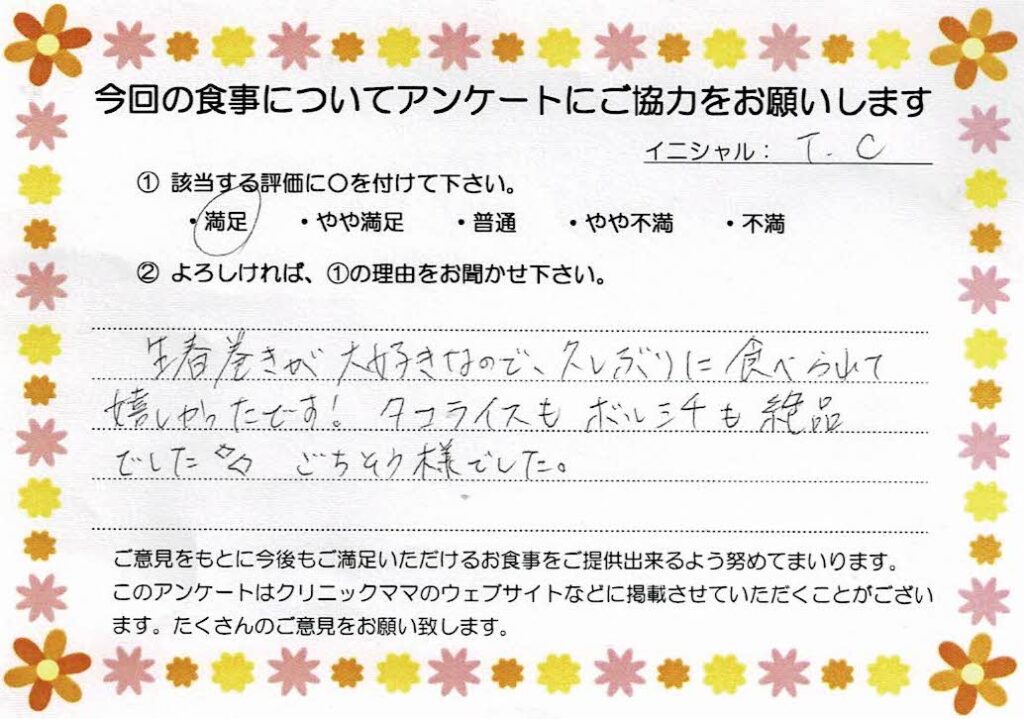 今回の食事についてアンケートにご協力をお願いします
イニシャル： T. C
① 該当する評価に〇を付けて下さい。
・満足 ・やや満足 ・普通 ・やや不満 ・不満
② よろしければ、①の理由をお聞かせ下さい。
生春巻きが大好きなので、久しぶりに食べられて
嬉しかったです！ タコライスもボルシチも絶品
でした ごちそう様でした。
ご意見をもとに今後もご満足いただけるお食事をご提供出来るよう努めてまいります。
このアンケートはクリニックママのウェブサイトなどに掲載させていただくことがござい
ます。たくさんのご意見をお願い致します。